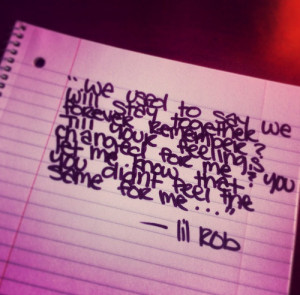 "We used to say we
will stay together
forever. Remember?
Till your feelings
changed for me! you
let me know that
you didnt feel the
same for me..."
— lil Rob